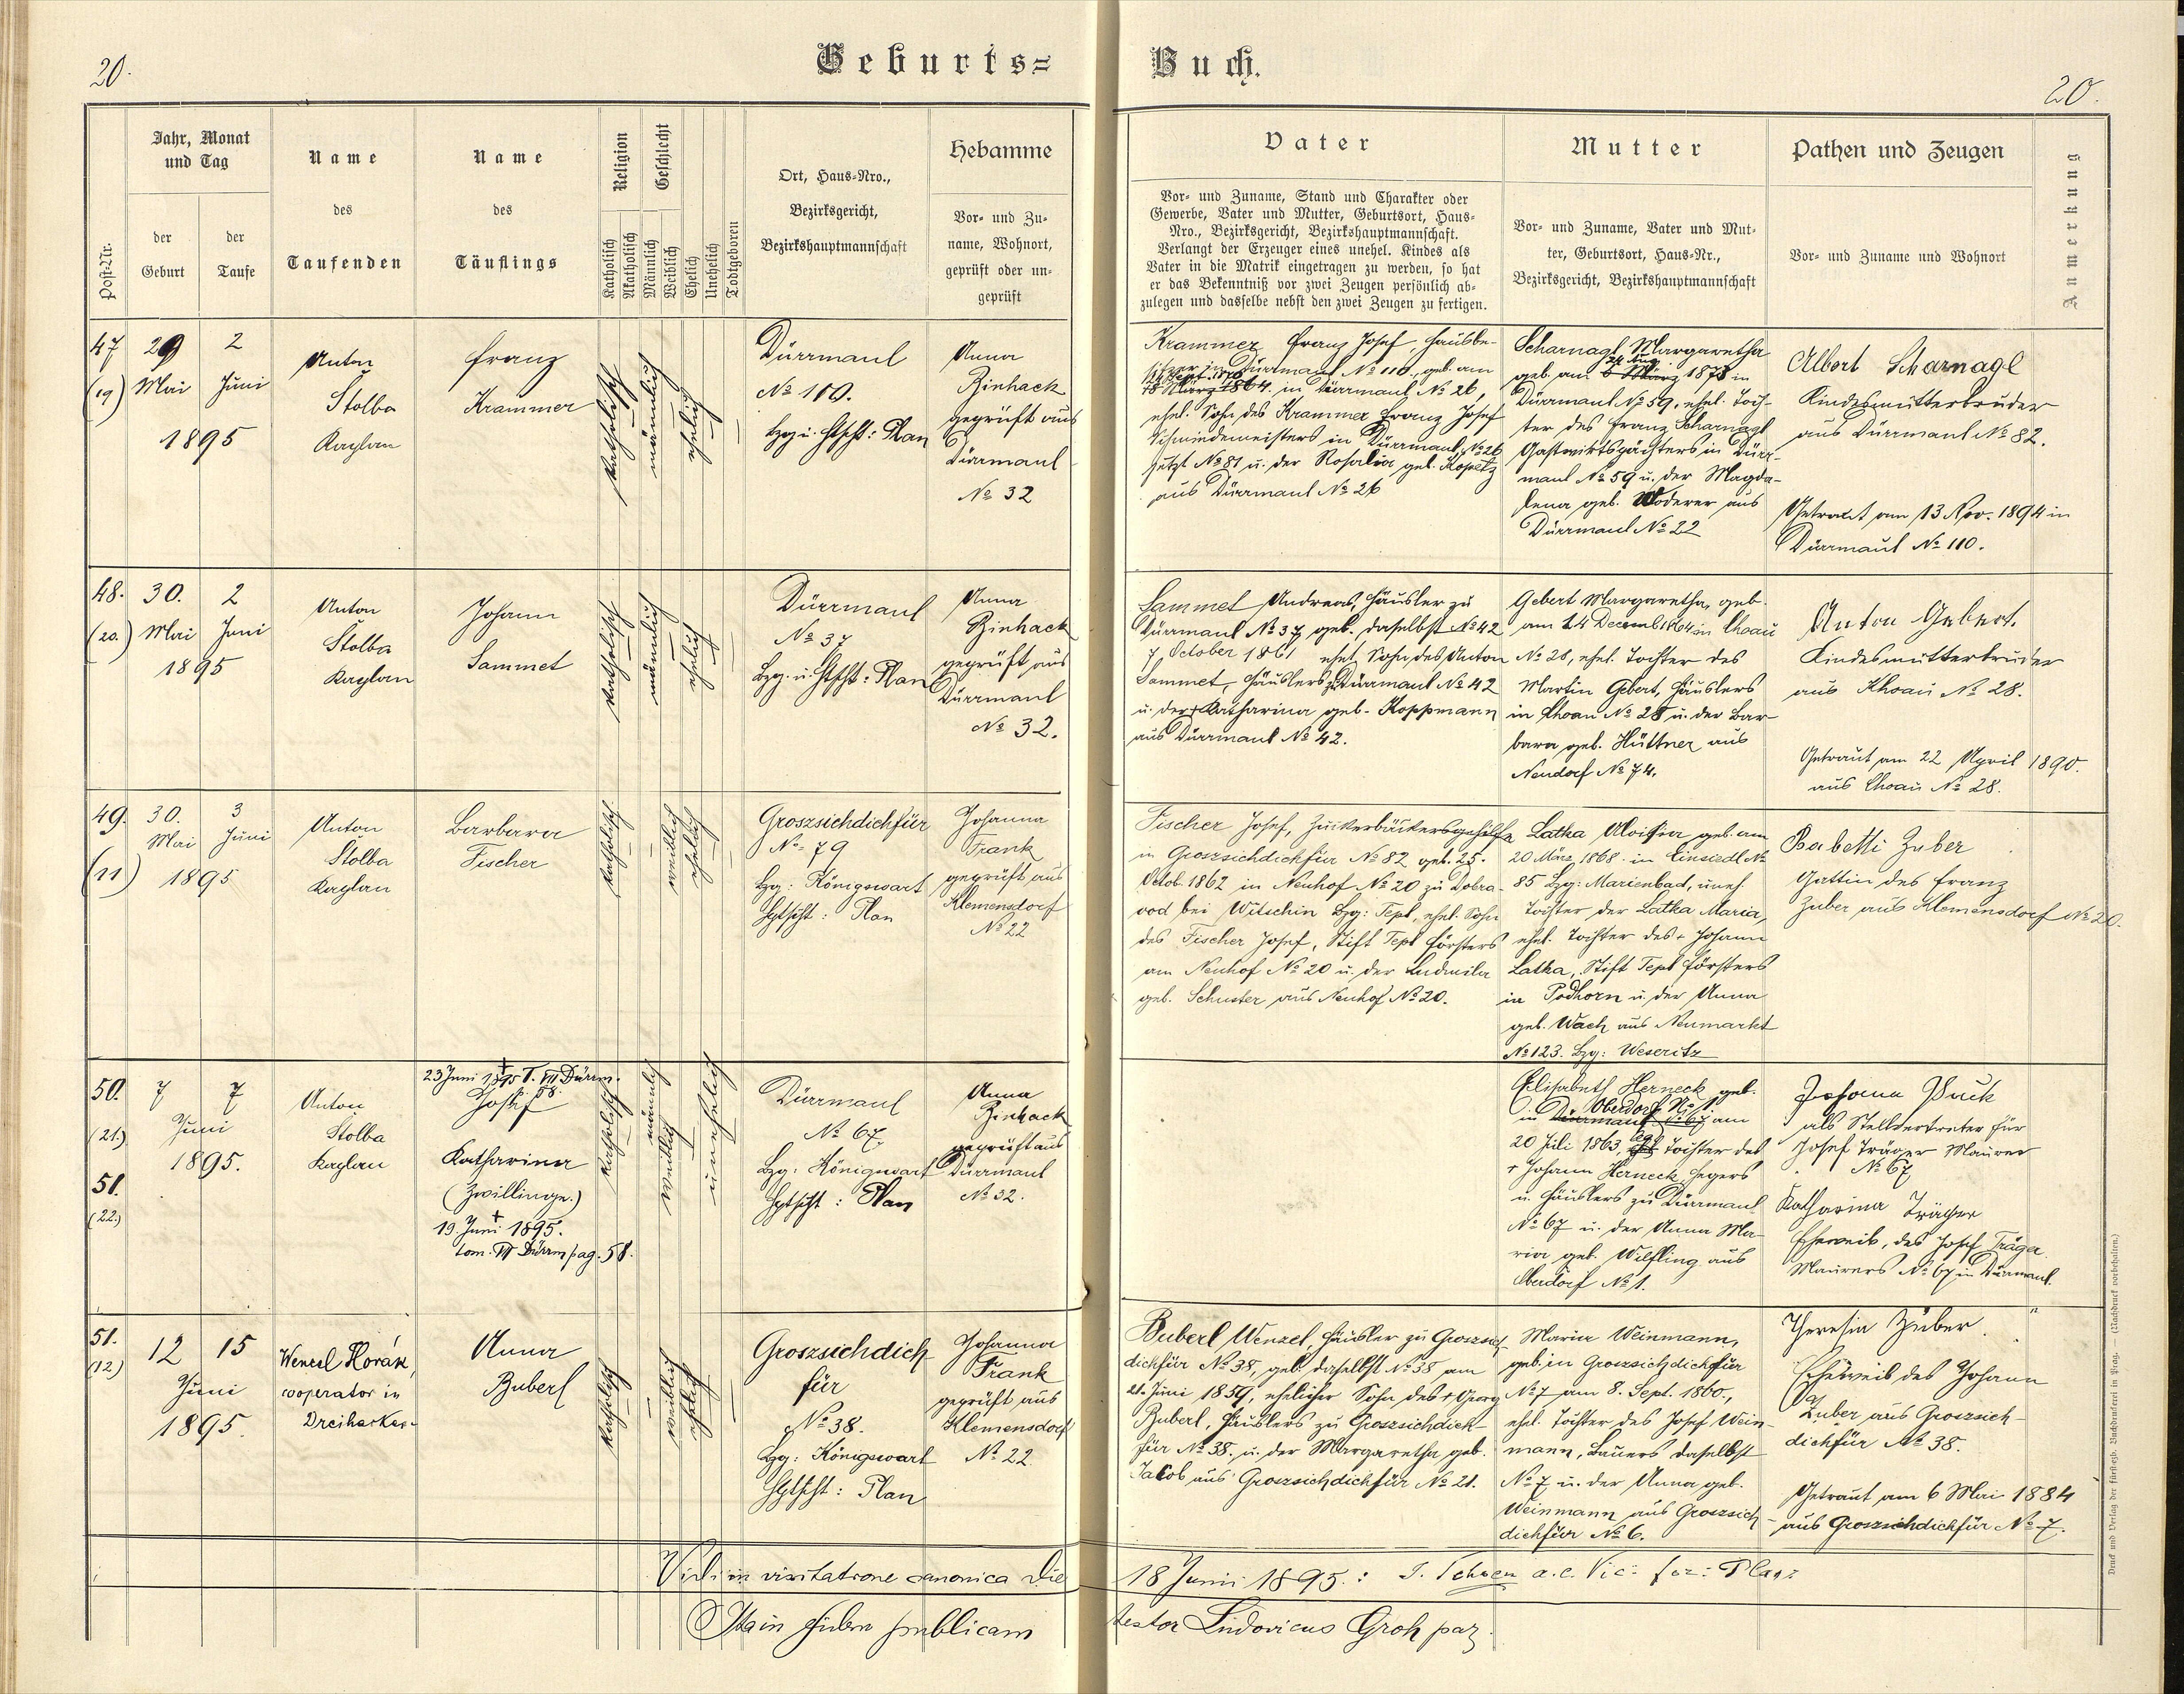 20.
Geburts=
Buch.
20.
Post-Nr.
Jahr, Monat
und Tag
der
Geburt
der
Taufe
Name
des
Taufenden
Name
des
Täuflings
Religion
Katholisch
Akatholisch
Geschlecht
Männlich
Weiblich
Ehelich
Unehelich
Todtgeboren
Ort, Haus=Nro.,
Bezirksgericht,
Bezirkshauptmannschaft
Hebamme
Vor= und Zu=
name, Wohnort,
geprüft oder un=
geprüft
Vater
Vor= und Zuname, Stand und Charakter oder
Gewerbe, Vater und Mutter, Geburtsort, Haus=
Nro., Bezirksgericht, Bezirkshauptmannschaft.
Verlangt der Erzeuger eines unehel. Kindes als
Vater in die Matrik eingetragen zu werden, so hat
er das Bekenntniß vor zwei Zeugen persönlich ab=
zulegen und dasselbe nebst den zwei Zeugen zu fertigen.
Mutter
Vor= und Zuname, Vater und Mut=
ter, Geburtsort, Haus=Nr.,
Bezirksgericht, Bezirkshauptmannschaft
Pathen und Zeugen
Vor= und Zuname und Wohnort
Anmerkung
47
(19)
29
Mai
2
Juni
1895
Anton
Stolba
Kaplan
Franz
Krammer
katholisch
männlich
ehelich
Dürrmaul
No 110.
Bzg. u. Htscht: Plan
Anna
Binhack
geprüft aus
Dürrmaul
No 32
Krammer Franz Josef, Häusbe-
sitzer in Dürrmaul No 110., geb. am
18 März 1864. in Dürrmaul No 26,
ehel. Sohn des Krammer Franz Josef
Schmiedemeisters in Dürrmaul No 26
jetzt No 81 u. der Rosalia geb. Kopetz
aus Dürrmaul No 26
Scharnagl Margaretha
24 Aug.
geb. am 6 März 1878 in
Dürrmaul No 59, ehel. Toch-
ter des Franz Scharnagl
Gastwirtspächters in Dürr-
maul No 59 u. der Magda-
lena geb. Woderer aus
Dürrmaul No 22
Albert Scharnagl
Kindesmutterbruder
aus Dürrmaul No 82.
Getraut am 13 Nov. 1894 in
Dürrmaul No 110.
48.
(20.)
30.
Mai
2
Juni
1895
Anton
Stolba
Kaplan
Johann
Sammet
katholisch
männlich
ehelich
Dürrmaul
No 37
Bzg. u. Htscht: Plan
Anna
Binhack
geprüft aus
Dürrmaul
No 32.
Sammet Andreas, Häusler zu
Dürrmaul No 37, geb. daselbst No 42
7 October 1861 ehel. Sohn des Anton
Sammet, Häuslers zu Dürrmaul No 42
u. der + Katharina geb. Koppmann
aus Dürrmaul No 42.
Gebert Margaretha, geb.
am 14 Decemb. 1864 in Choau
No 28, ehel. Tochter des
Martin Gebert, Häuslers
in Choau No 28 u. der Bar-
bara geb. Hüttner aus
Neudorf No 74.
Anton Gebert.
Kindesmutterbruder
aus Khoau No 28.
Getraut am 22 April 1890.
aus Choau No 28.
49.
(11)
30.
Mai
3
Juni
1895
Anton
Stolba
Kaplan
Barbara
Fischer
katholisch
weiblich
ehelich
Groszsichdichfür
No 79
Bzg: Königswart
Hptscht: Plan
Johanna
Frank
geprüft aus
Klemensdorf
No 22
Fischer Josef, Zuckerbäckersgehilfe
in Groszsichdichfür No 82 geb. 25.
Octob 1862 in Neuhof No 20 zu Dobra-
vod bei Witschin Bzg: Tepl, ehel. Sohn
des Fischer Josef, Stift Tepl Försters
am Neuhof No 20 u. der Ludmila
geb. Schuster aus Neuhof No 20.
Latka Aloisia geb. am
20 März 1868 in Einsiedl No
85 Bzg: Marienbad, unehl.
Tochter der Latka Maria,
ehel. Tochter des + Johann
Latka, Stift Tepl Försters
in Podhorn u. der Anna
geb. Wach aus Neumarkt
No 123. Bzg: Weseritz
Babetti Zuber
Gattin des Franz
Zuber aus Klemensdorf No 20.
50.
(21.)
51.
(22.)
7
7
Juni
1895.
Anton
Stolba
Kaplan
23 Juni 1895 T. VII Dürrm.
58.
Josef
Katharina
(Zwillinge.)
+
19 Juni 1895.
tom. VII Dürrm pag. 58.
katholisch
männlich
weiblich
unehelich
Dürrmaul
No 67.
Bzg: Königswart
Hptscht: Plan
Anna
Binhack
geprüft aus
Dürrmaul
No 32.
Elisabeth Herneck, geb.
Oberdorf No 1.
in Dürrmaul No 67 am
20 Juli 1863, Tochter des
+ Johann Herneck, Hegers
u. Häuslers zu Dürrmaul
No 67 u. der Anna Ma-
ria geb. Wilfling aus
Oberdorf No 1.
Johann Puck
als Stellvertreter für
Josef Träger Maurer
No 67
Katharina Träger
Eheweib, des Josef Träger
Maurers No 67 in Dürrmaul.
51.
(12)
12
15
Juni
1895.
Wencsl Horák,
cooperator in
Dreihacken
Anna
Buberl
katholisch
weiblich
ehelich
Groszsichdich
für
No 38.
Bzg: Königswart
Hptscht: Plan
Johanna
Frank
geprüft aus
Klemensdorf
No 22
Buberl Wenzel, Häusler zu Groszsich
dichfür No 38, geb. daselbst No 38 am
21. Juni 1859, ehelicher Sohn des + Georg
Buberl, Häuslers zu Groszsichdich-
für No 38. u. der Margaretha geb.
Jakob aus Groszsichdichfür No 21.
Maria Weinmann,
geb. in Groszsichdichfür
No 7 am 8. Sept. 1860.,
ehel. Tochter des Josef Wein-
mann, Bauers daselbst
No 7 u. der Anna geb.
Weinmann aus Groszsich-
dichfür No 6.
Theresia Zuber.
Eheweib des Johann
Zuber aus Groszsich-
dichfür No 38.
Getraut am 6 Mai 1884
aus Groszsichdichfür No 7.
Vidi in visitatione canonica die
18 Junii 1895.: J. a.e. Vic: for: Plan
Ita in fidem publicam
testor Ludovicus Groh par.
Druck und Verlag der fürsterzb. Buchdruckerei in Prag. (Nachdruck vorbehalten.)